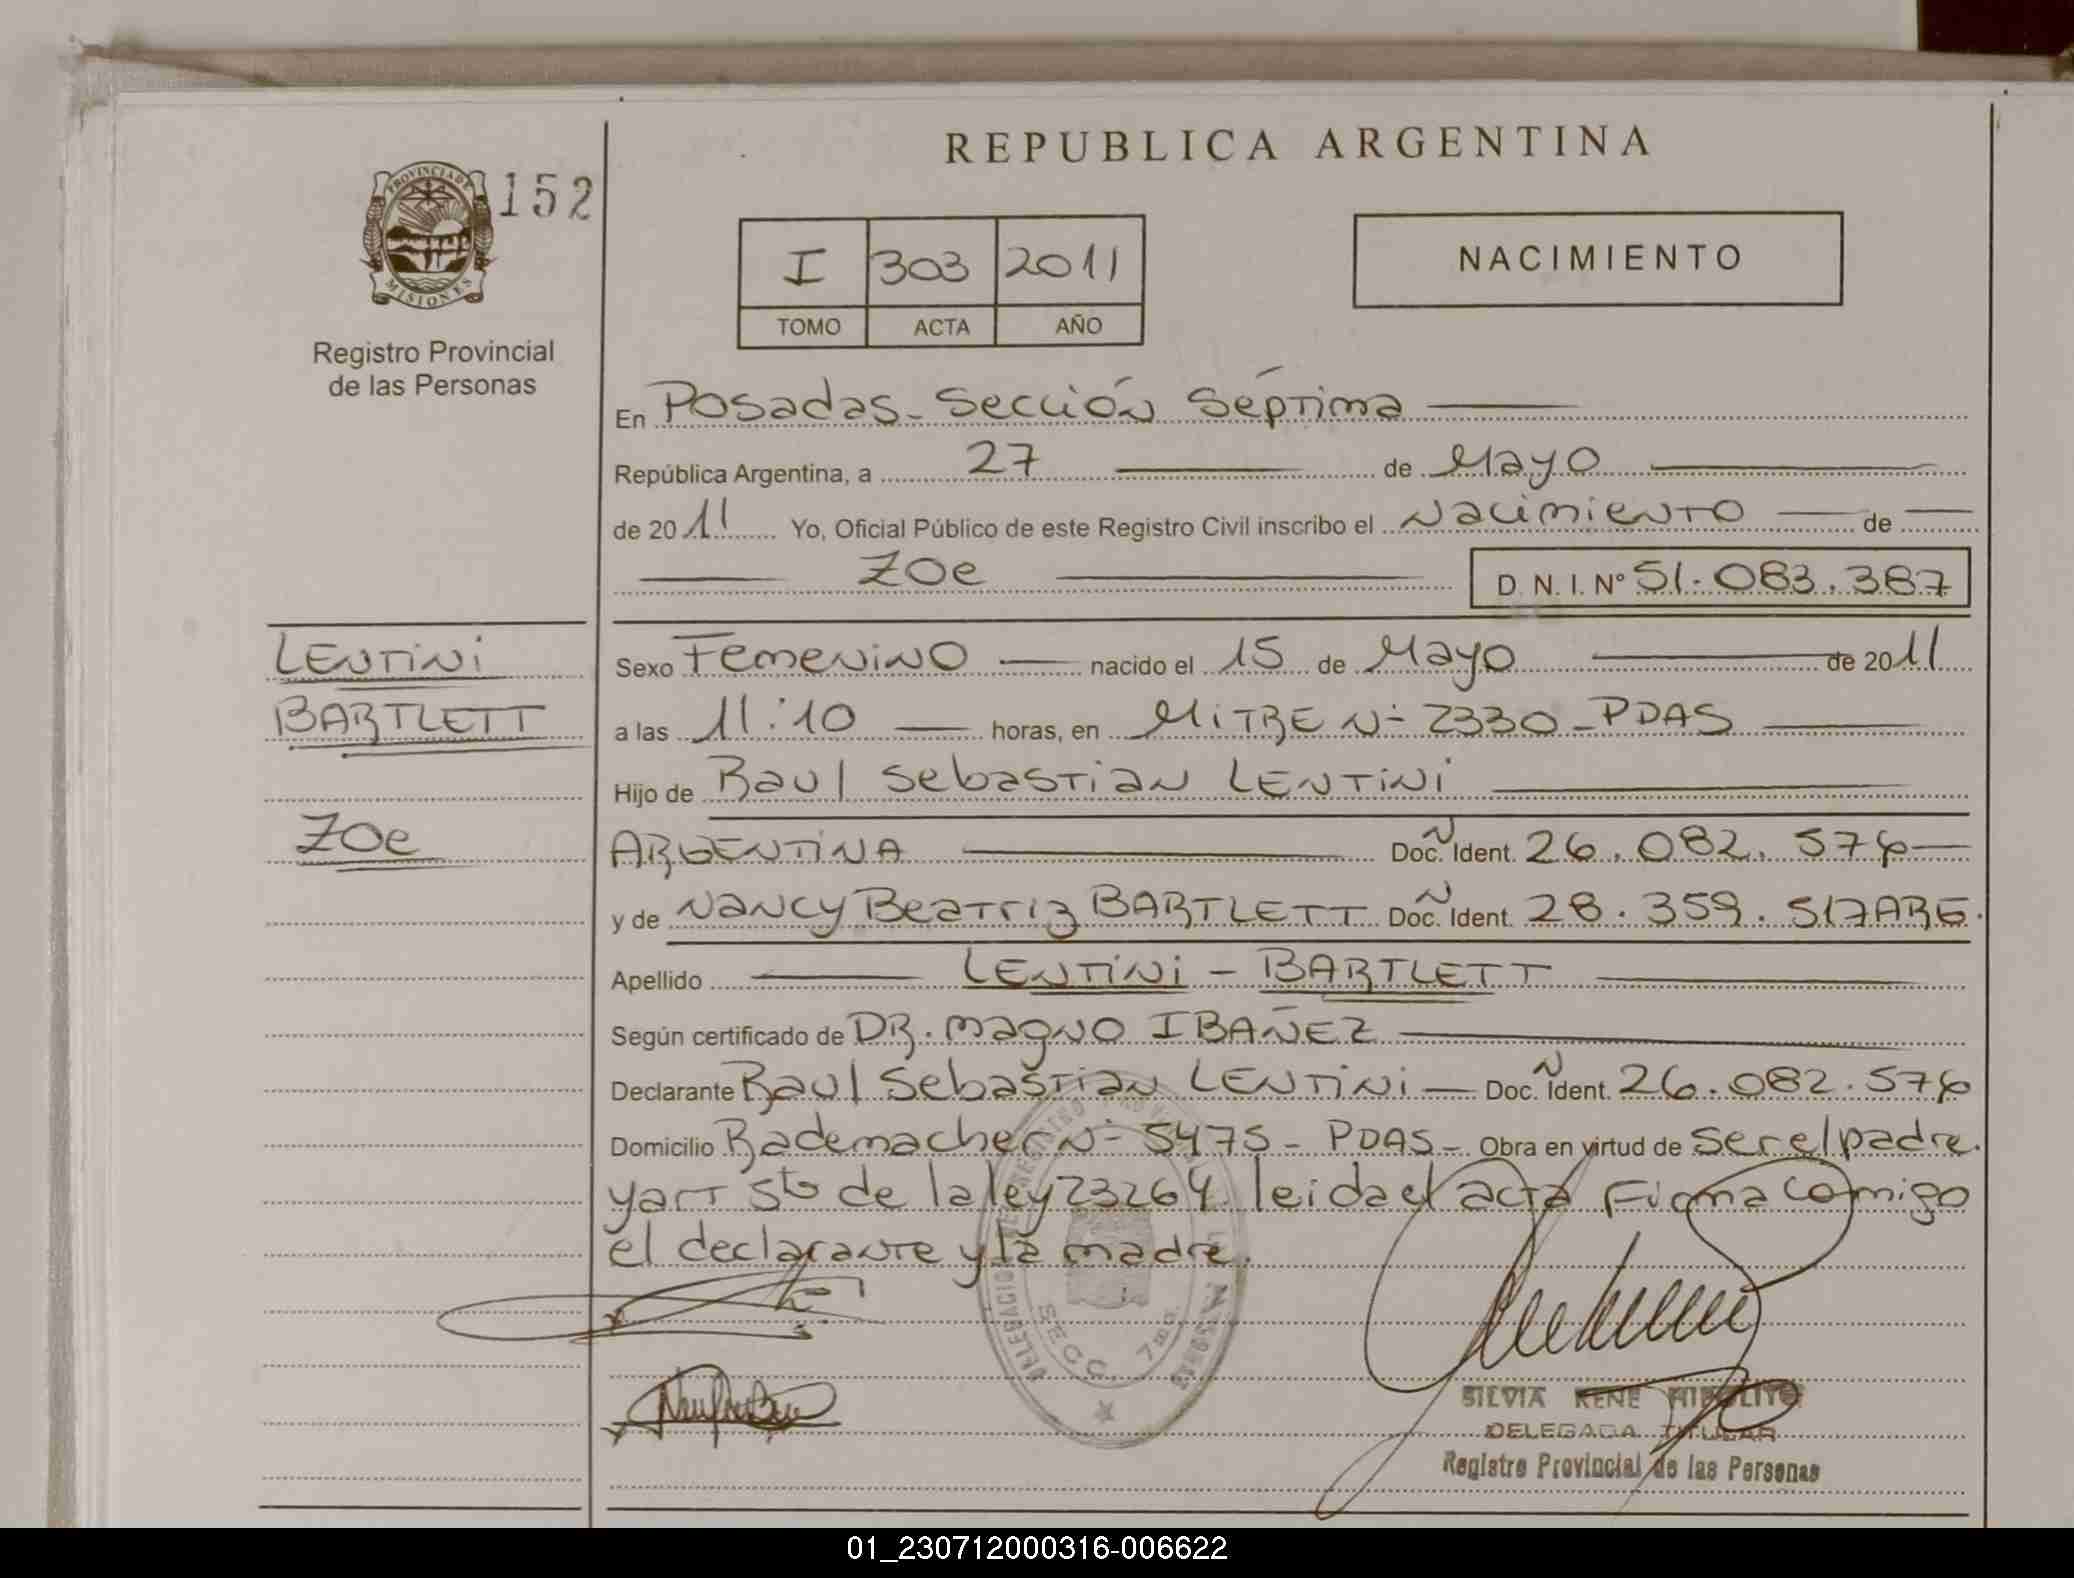 REPUBLICA ARGENTINA
PROVINCIA DE
MISIONES
152
Registro Provincial
de las Personas
I 303 2011
TOMO ACTA AÑO
NACIMIENTO
En Posadas - Sección Séptima
República Argentina, a 27 de Mayo
de 2011 Yo, Oficial Público de este Registro Civil inscribo el Nacimiento de
Zoe D. N. I. N° 51.083.387
LENTINI
BARTLETT
Zoe
Sexo Femenino nacido el 15 de Mayo de 2011
a las 11:10 horas, en MITRE N- 2330 - PDAS
Hijo de Raul Sebastian LENTINI
ARGENTINA Doc. Ident. 26.082.576
y de Nancy Beatriz BARTLETT Doc. Ident. 28.359.517 ARG.
Apellido LENTINI - BARTLETT
Según certificado de DR. Magno IBAÑEZ
Declarante Raul Sebastian LENTINI - Doc. Ident. 26.082.576
Domicilio Rademacher N- 5475 - PDAS - Obra en virtud de ser el padre.
y art 5to de la ley 23264. leida el acta Firma comigo
el declarante y la madre.
SECC. 7ma.
SILVIA RENE HIPOLITO
DELEGADA TITULAR
Registro Provincial de las Personas
01_230712000316-006622